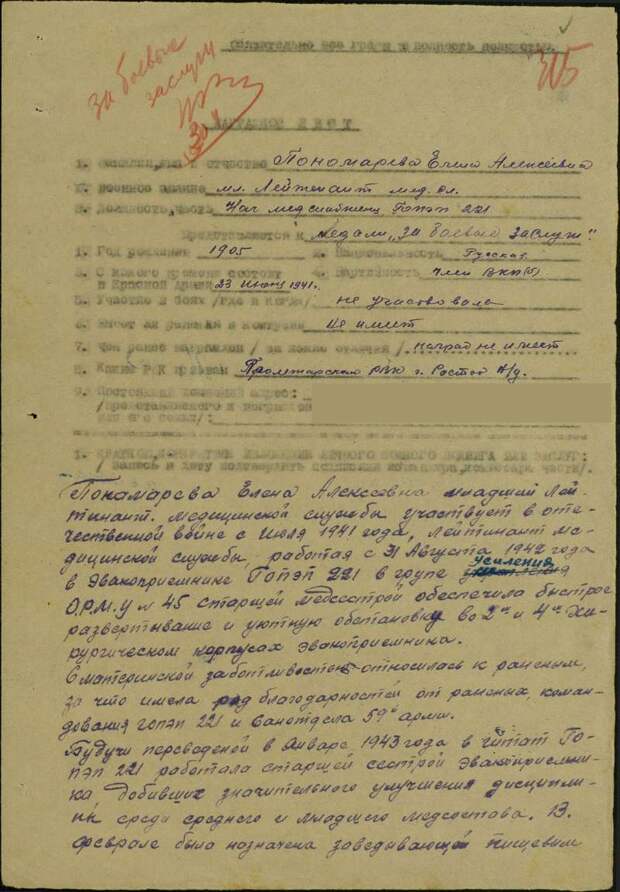 за боевые
заслуги
305
Обязательно все графы и полность
НАГРАДНОЙ ЛИСТ
1. Фамилия, имя и отчество Пономарева Елена Алексеевна
2. Военное звание мл. Лейтенант мед. сл.
3. Должность, часть Нач медснабжен ГОПЭП 221
Представляется к медали "За боевые заслуги"
1. Год рождения 1905 2. Национальность Русская
3. С какого времени состоит
в Красной Армии 23 июня 1941г. 4. Партийность член ВКП(б)
5. Участие в боях /где и когда/ не участвовала
6. Имеет ли ранения и контузии Не имеет
7. Чем ранее награжден / за какие отличия / наград не имеет
8. Каким РВК призван Пролетарским РВК г. Ростов н/д.
9. Постоянный домашний адрес:
/представляемого к награжден
или его семьи/:
1. КРАТКОЕ, КОНКРЕТНОЕ ИЗЛОЖЕНИЕ ЛИЧНОГО БОЕВОГО ПОДВИГА ИЛИ ЗАСЛУГ:
Пономарева Елена Алексеевна младший Лей-
тинант. медицинской службы участвует в оте-
чественной войне с июля 1941 года, Лейтинант ме-
дицинской службы, работая с 31 Августа 1942 года
в Эвакоприемнике ГОПЭП 221 в групе усиления
О.Р.М.У № 45 старшей медсестрой обеспечила быстрое
развертывание и уютную обстановку во 2ом и 4ом Хи-
рургическом корпусах эвакоприемника.
С материнской заботливостью относилась к раненым,
за что имела ряд благодарностей от раненых, коман-
дования ГОПЭП 221 и Санотдела 59й арми.
Будучи переведеной в Январе 1943 года в штат Го-
ПЭП 221 работала старшей сестрой Эвакоприемни-
ка добивших значительного улучшения дисципли-
ны среди среднего и младшего медсостава. В
феврале была назначена заведывающей пищевым